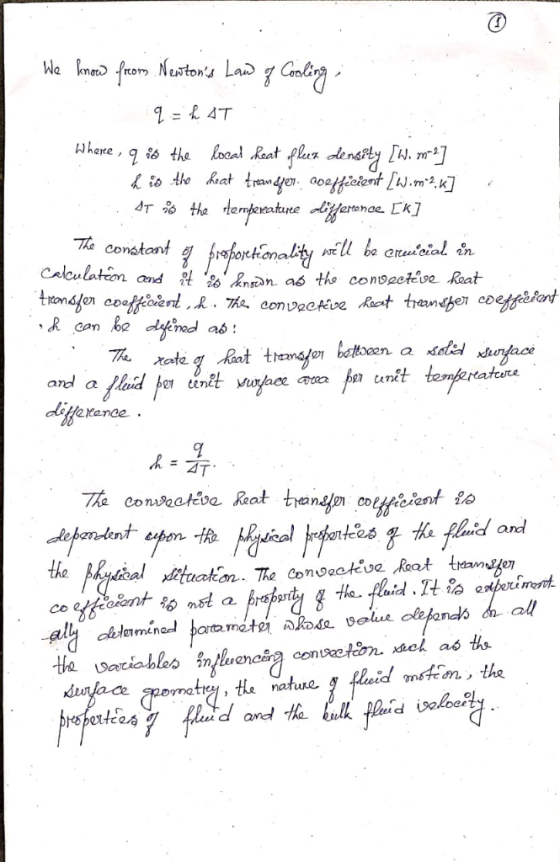 ①
We know from Newton's Law of Cooling,
q = h ΔT
Where, q is the local heat flux density [W. m⁻²]
h is the heat transfer coefficient [W.m⁻².K]
ΔT is the temperature difference [K]
The constant of proportionality will be crucial in
calculation and it is known as the convective heat
transfer coefficient, h. The convective heat transfer coefficient
, h can be defined as:
The rate of heat transfer between a solid surface
and a fluid per unit surface area per unit temperature
difference.
h = q/ΔT.
The convective heat transfer coefficient is
dependent upon the physical properties of the fluid and
the physical situation. The convective heat transfer
coefficient is not a property of the fluid. It is experiment
ally determined parameter whose value depends on all
the variables influencing convection such as the
surface geometry, the nature of fluid motion, the
properties of fluid and the bulk fluid velocity.